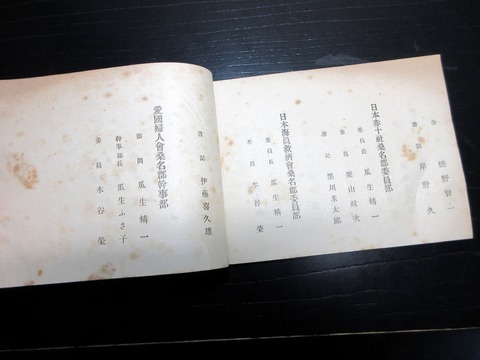 仝 松野賢一
書記 岸野久
日本赤十社桑名郡委員部
委員長 瓜生精一
委員 栗山政次
書記 黒川米太郎
日本海員救濟會桑名郡委員部
委員長 瓜生精一
委員 水谷榮
書記 伊藤喜久雄
愛國婦人會桑名郡幹事部
顧問 瓜生精一
幹事部長 瓜生ふさ子
委員 水谷榮